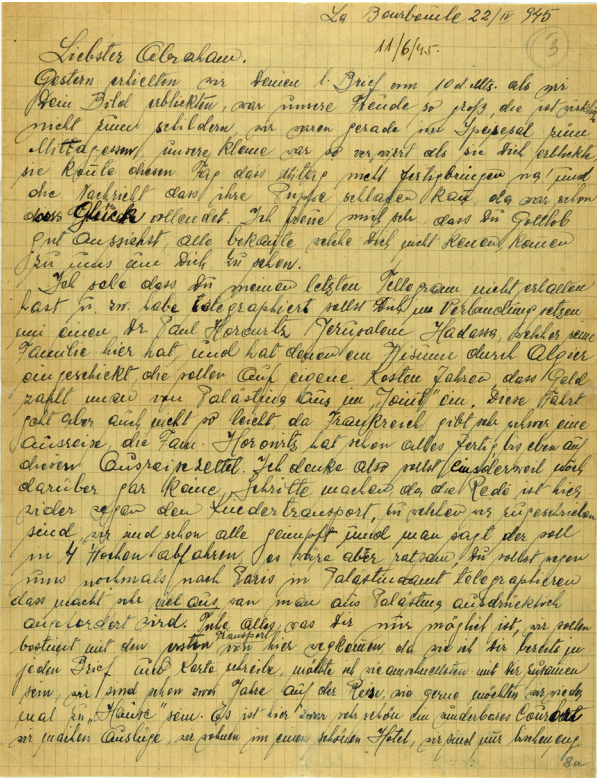 La Bourboule 22/IV 945
11/6/45.
3
Liebster Abraham.
Gestern erhielten wir Deinen l. Brief vom 10 d Mts. als wir
Dein Bild erblickten, war unsere Freude so groß, die ist wirklich
nicht zum schildern, wir waren gerade im Speisesal zum
Mittagessen, unsere kleine war so verwirrt als sie Dich erblickte
sie konte diesen Tag das Mittag nicht fertigbringen na! und
die Nachricht dass ihre Puppe schlafen kan, da war schon
dass Glück vollendet. Ich freue mich sehr, dass Du Gottlob
gut aussiehst, alle bekante welche Dich nicht kenen, komen
zu uns um Dich zu sehen.
Ich sehe dass Du meinen letzten Tellegram nicht erhalten
hast u. zw. habe telegraphiert sollst Dich in Verbindung setzen
mit einen Dr. Paul Horowitz Jerusalem Hadassa, welcher seine
Familie hier hat, und hat denen ein Visum durch Algier
eingeschickt, die sollen auf eigene Kosten fahren, dass Geld
zahlt man von Palästina aus im "Joint" ein. Diese Fahrt
geht aber auch nicht so leicht, da Frankreich gibt sehr schwer eine
Ausreise, die Fam. Horowitz hat schon alles fertig bis eben auf
diesen Ausreisezettel. Ich denke also sollst einsderweil noch
darüber gar keine Schritte machen, da die Rede ist hier
wider wegen den Kindertransport, zu welchen wir zugeschrieben
sind, wir sind schon alle geimpft und man sagt der soll
in 4 Wochen abfahren, es wäre aber ratsam, Du sollst wegen
uns nochmals nach Paris in Palästinaamt telegraphieren
dass macht sehr viel aus, wan man aus Palästina ausdrücklich
angefordert wird. Tuhe alles was Dir nur möglich ist, wir sollen
bestimt mit den ersten Transport von hier wegkomen, da wie ich Dir bereits in
jeden Brief und Karte schreibe, möchte ich wie am schnellsten mit Dir zusamen
sein, wir sind schon zwei Jahre auf der Reise, wie gerne möchten wir wieder
mal zu "Hause" sein. Es ist hier zwar sehr schön ein wunderbares Courort
wir machen Ausflüge, wir wohnen in einen schönen Hotel, wir sind nur bischen eng
8a